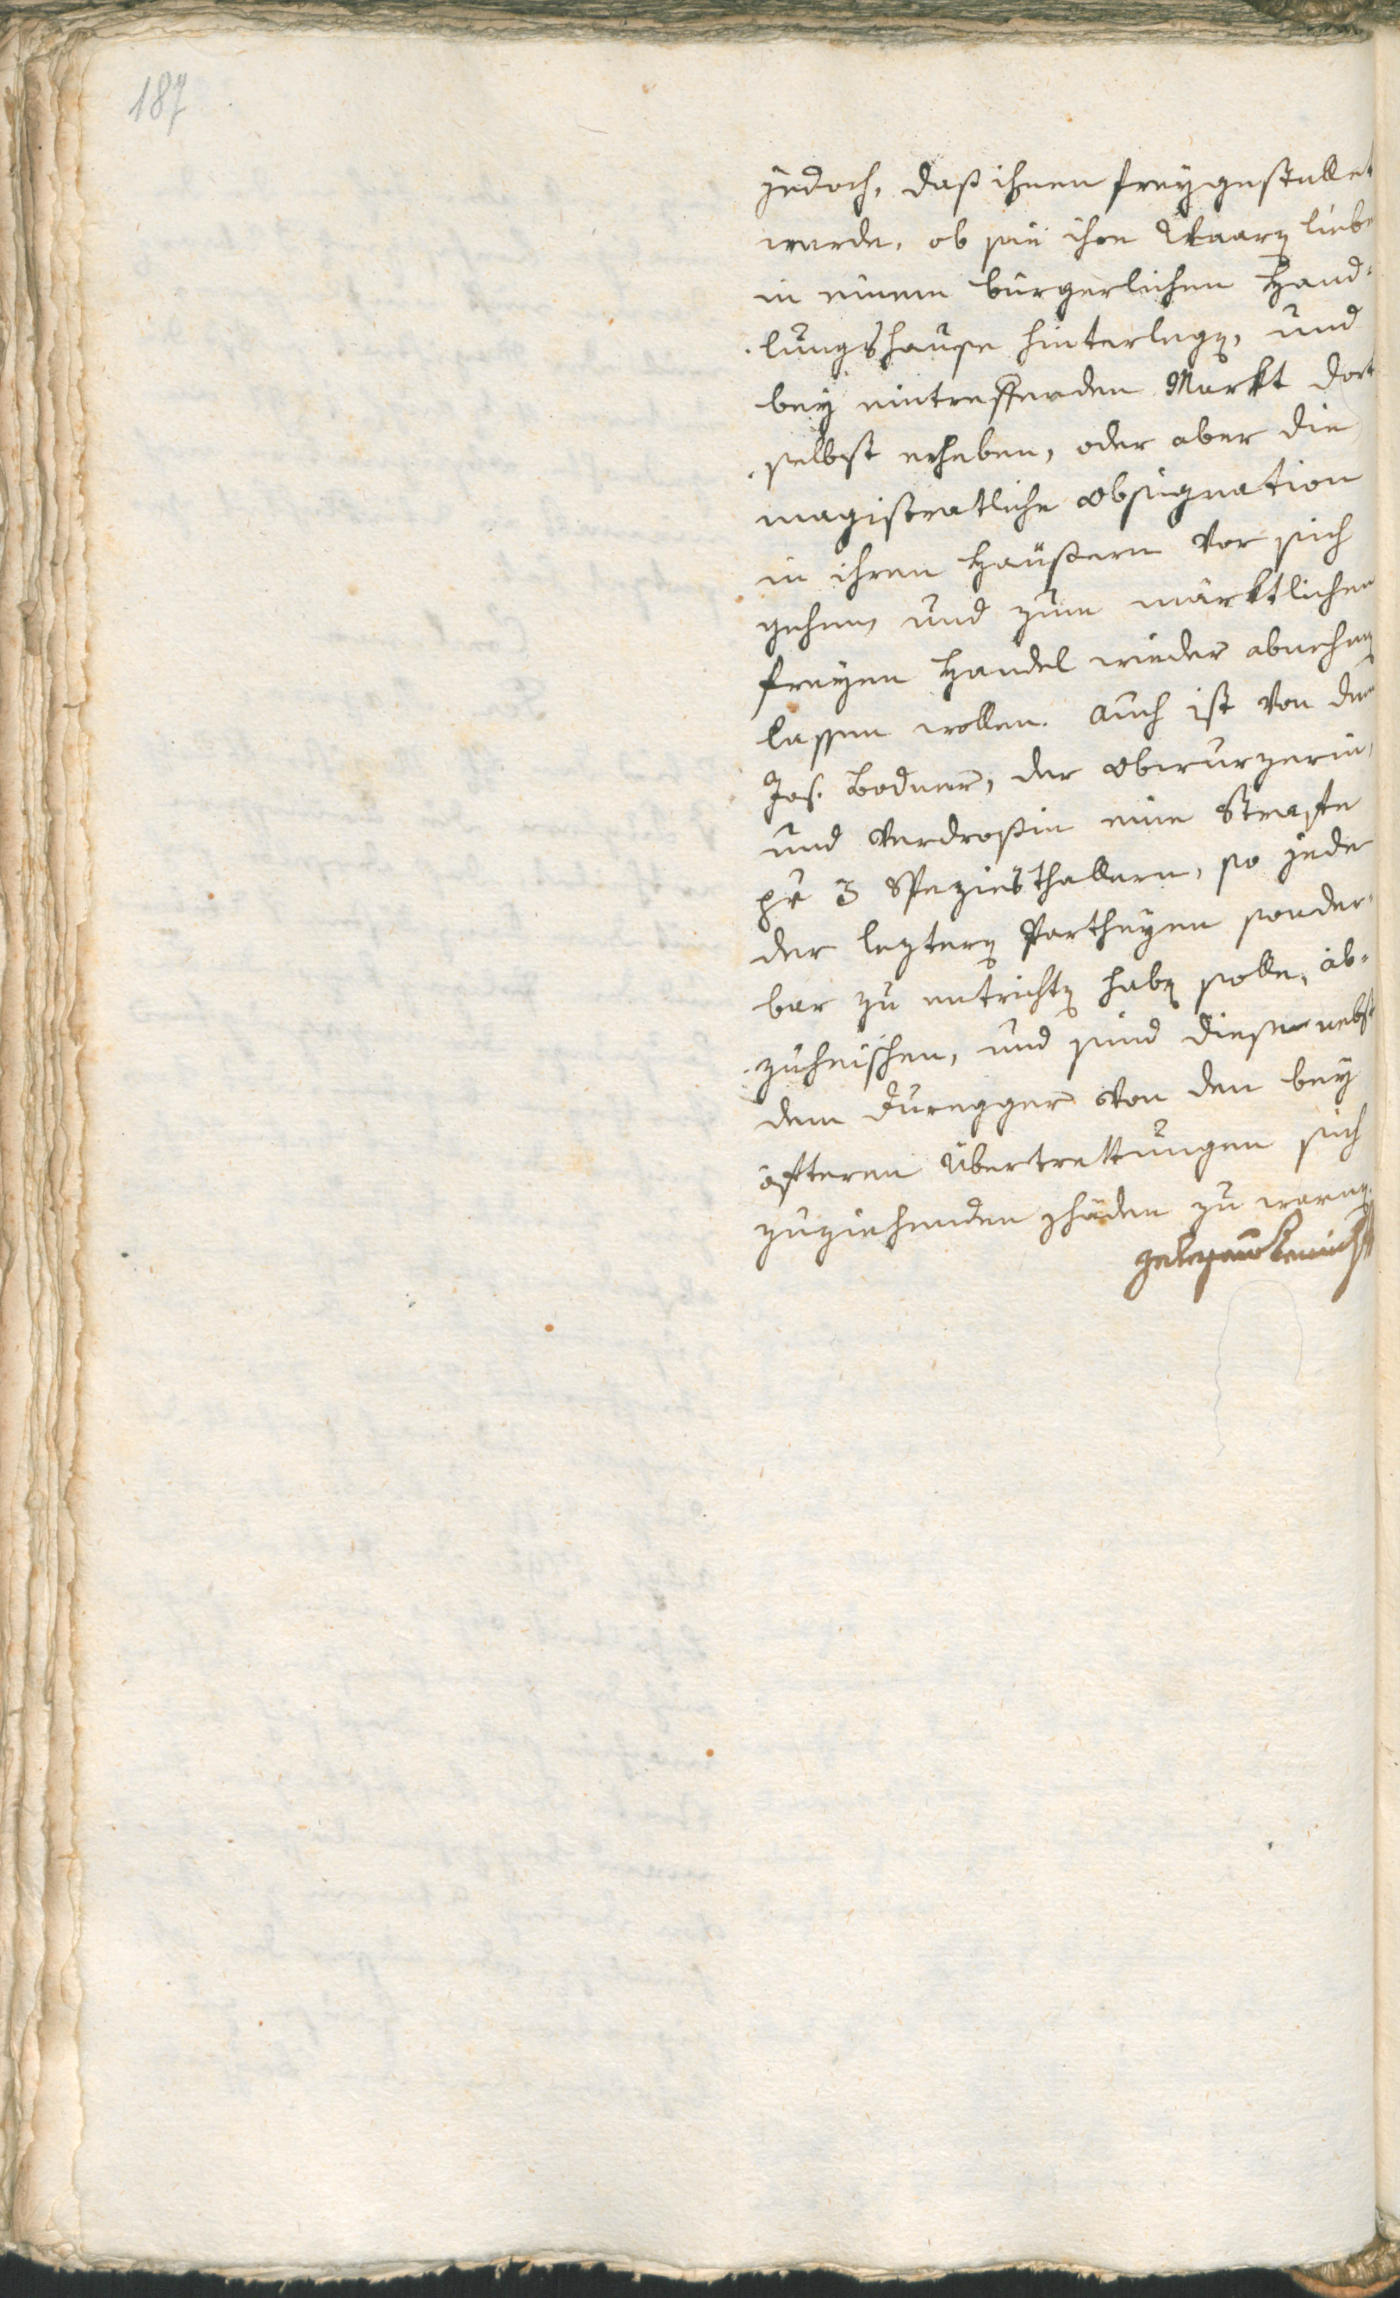 187
jedoch, daß ihnen freygestellet
werde, ob sie ihre Waaren liebe
in einem bürgerlichen Hand-
lungshause hinterlegen, und
bey eintreffenden Markt dort
selbst erheben, oder aber die
magistratliche Obsignation
in ihren Häußern vor sich
gehen, und zum märktlichen
freyen Handel wieder abnehmen
lassen wollen. Auch ist von dem
Jos. Bodner, der Obwurzerin,
und Verdroßin eine Strafe
pr 3 Speziesthallern, so jede
der leztern Partheyen sonder-
bar zu entrichten haben solle, ab-
zuheischen, und sind diese nebst
dem Duregger von den bey
öfteren Übertrettungen sich
zuziehenden Schäden zu warnen.